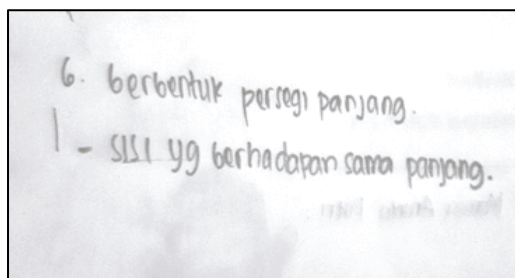 6. berbentuk persegi panjang.
1 - sisi yg berhadapan sama panjang.